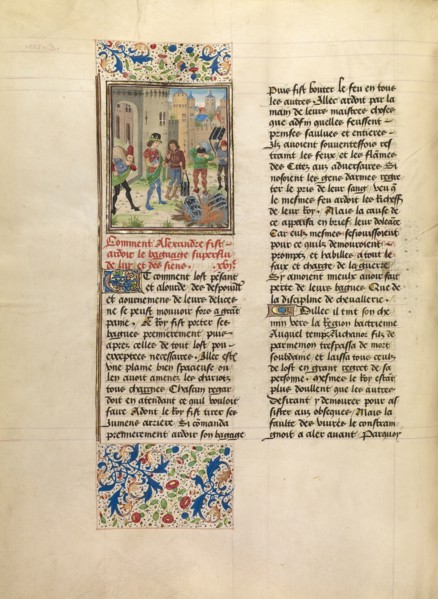 Comment Alexandre fist
ardoir le baguaige superflu
de luy et des siens. xvj.
Et comment lost pesant
et alourde des despouilles
et aournemens de leurs delices
ne se peust mouvoir fors a grant
paine. Le Roy fist porter ses
bagues premierement puis
apres celles de tout lost pou
exceptees necessaires. Illec estoit
une plaine bien spacieuse ou
len avoit amenez les chariotz
tous chargies. Chascun regar
doit en attendant ce quil vouloit
faire Adont le Roy fist tirer ses
jumens arriere Si comanda
premierement ardoir son bagage
Puis fist bouter le feu en tous
les autres. Illec ardoit par la
main de leurs maistres choses
que adfin quelles feussent
prinses saulves et entieres
Ilz avoient souventesfois res
traint les feux et les flames
des Citez aux adversaires Si
nosoient les gens darmes regre
ter le pris de leur sang veu que
le mesmes feu ardoit les richesses
de leur Roy. Mais la cause de
ce appaisa en brief leur doleance
Car eulx mesmes sesjouissoient
pour ce quilz demouroient
promptz et habilles a tout le
faix et charge de la guerre
Sy amoient mieulx avoir fait
perte de leurs bagues Que de
la discipline de chevallerie.
Dillec il tint son che
min vers la Region bactrienne
Auquel temps Nichanor filz de
parmenon trespassa de mort
soubdaine et laissa tous ceulx
de lost en grant regret de sa
personne. Mesmes le Roy estoit
plus doullent que les autres
Desirant y demourer pour as
sister aux obseques Mais la
faulte des vivres le constraing
gnoit a aler avant Parquoy